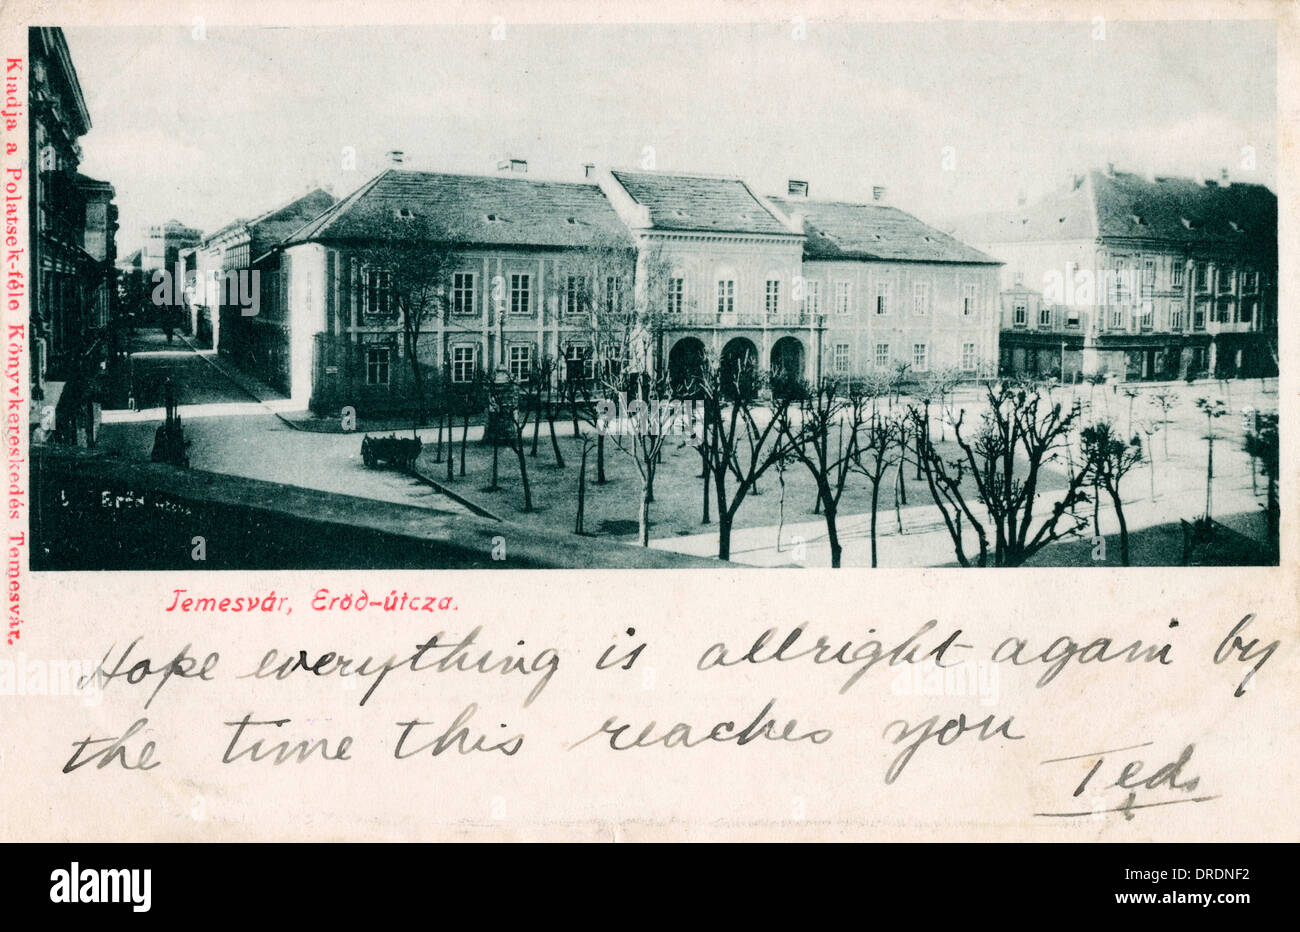 Kiadja a Polatsek-féle Könyvkereskedés Temesvár.
Temesvár, Erőd-útcza.
Hope everything is allright again by
the time this reaches you
Ted.
alamy
Image ID: DRDNF2
www.alamy.com